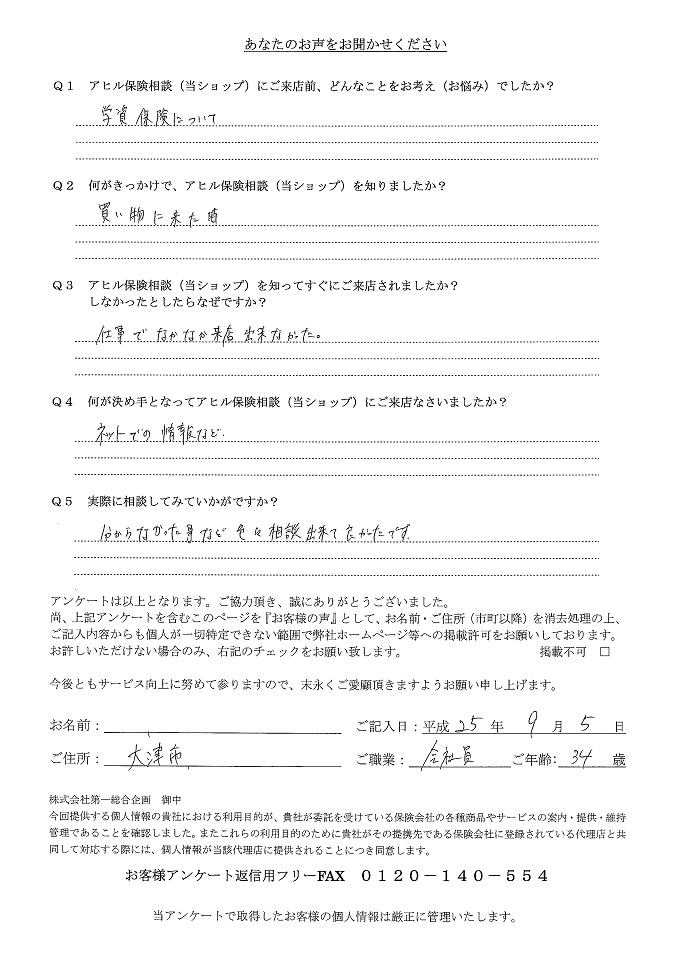 あなたのお声をお聞かせください
Q1 アヒル保険相談（当ショップ）にご来店前、どんなことをお考え（お悩み）でしたか？
学資保険について
Q2 何がきっかけで、アヒル保険相談（当ショップ）を知りましたか？
買い物に来た時
Q3 アヒル保険相談（当ショップ）を知ってすぐにご来店されましたか？
しなかったとしたらなぜですか？
仕事でなかなか来店出来なかった。
Q4 何が決め手となってアヒル保険相談（当ショップ）にご来店なさいましたか？
ネットでの情報など.
Q5 実際に相談してみていかがですか？
分からなかった事など色々相談出来て良かったです.
アンケートは以上となります。ご協力頂き、誠にありがとうございました。
尚、上記アンケートを含むこのページを『お客様の声』として、お名前・ご住所（市町以降）を消去処理の上、
ご記入内容からも個人が一切特定できない範囲で弊社ホームページ等への掲載許可をお願いしております。
お許しいただけない場合のみ、右記のチェックをお願い致します。 掲載不可 □
今後ともサービス向上に努めて参りますので、末永くご愛顧頂きますようお願い申し上げます。
お名前： ご記入日：平成 25 年 9 月 5 日
ご住所： 大津市 ご職業： 会社員 ご年齢： 34 歳
株式会社第一総合企画 御中
今回提供する個人情報の貴社における利用目的が、貴社が委託を受けている保険会社の各種商品やサービスの案内・提供・維持
管理であることを確認しました。またこれらの利用目的のために貴社がその提携先である保険会社に登録されている代理店と共
同して対応する際には、個人情報が当該代理店に提供されることにつき同意します。
お客様アンケート返信用フリーFAX ０１２０－１４０－５５４
当アンケートで取得したお客様の個人情報は厳正に管理いたします。